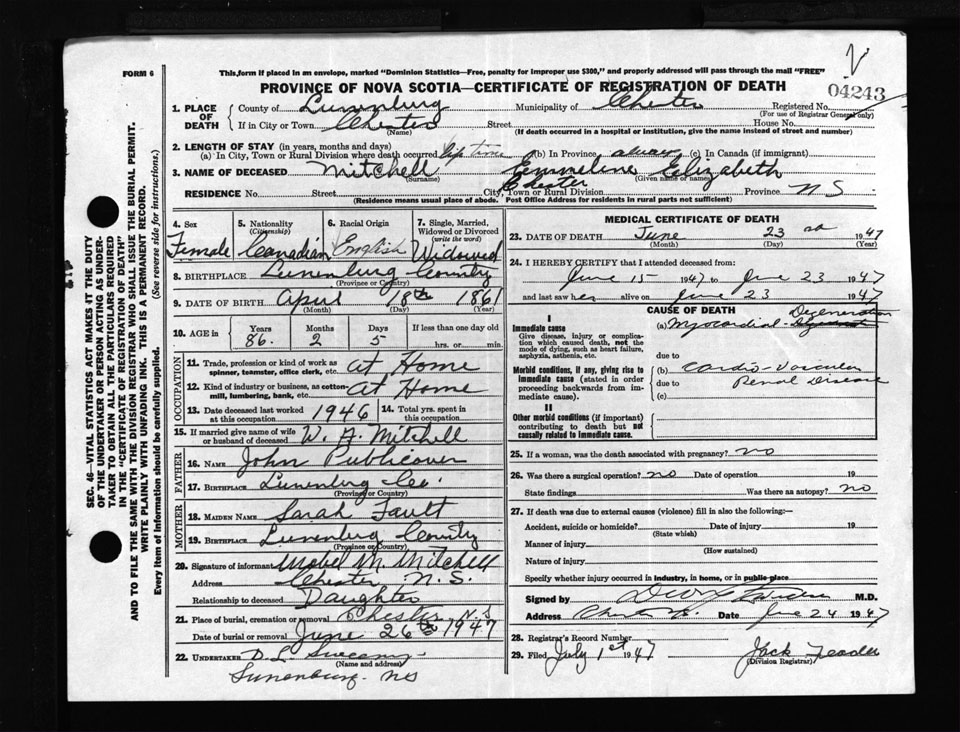 FORM 6
This form if placed in an envelope, marked "Dominion Statistics—Free, penalty for improper use $300," and properly addressed will pass through the mail "FREE"
PROVINCE OF NOVA SCOTIA—CERTIFICATE OF REGISTRATION OF DEATH
04243
1. PLACE OF DEATH County of Lunenburg Municipality of Chester Registered No.
(For use of Registrar General only)
If in City or Town Chester Street House No.
(Name) (If death occurred in a hospital or institution, give the name instead of street and number)
2. LENGTH OF STAY (in years, months and days)
(a) In City, Town or Rural Division where death occurred life time (b) In Province always (c) In Canada (if immigrant)
3. NAME OF DECEASED Mitchell Emmeline Elizabeth
(Surname) (Given name or names)
RESIDENCE No. Street City, Town or Rural Division Chester Province N.S.
(Residence means usual place of abode. Post Office Address for residents in rural parts not sufficient)
4. Sex 5. Nationality (Citizenship) 6. Racial Origin 7. Single, Married, Widowed or Divorced (write the word)
Female Canadian English Widowed
8. BIRTHPLACE Lunenburg County
(Province or Country)
9. DATE OF BIRTH April 18th 1861
(Month) (Day) (Year)
10. AGE in Years Months Days If less than one day old
86. 2 5 hrs. or min.
OCCUPATION
11. Trade, profession or kind of work as spinner, teamster, office clerk, etc. At Home
12. Kind of industry or business, as cotton-mill, lumbering, bank, etc. At Home
13. Date deceased last worked at this occupation 1946 14. Total yrs. spent in this occupation
15. If married give name of wife or husband of deceased W. A. Mitchell
FATHER
16. NAME John Publicover
17. BIRTHPLACE Lunenburg Co.
(Province or Country)
MOTHER
18. MAIDEN NAME Sarah Fault
19. BIRTHPLACE Lunenburg County
(Province or Country)
20. Signature of informant Mabel M. Mitchell
Address Chester N.S.
Relationship to deceased Daughter
21. Place of burial, cremation or removal Chester N.S
Date of burial or removal June 26th 1947
22. UNDERTAKER D L Sweeny
(Name and address)
Lunenburg. NS
MEDICAL CERTIFICATE OF DEATH
23. DATE OF DEATH June 23 rd 1947
(Month) (Day) (Year)
24. I HEREBY CERTIFY that I attended deceased from:
June 15 1947 to June 23 1947
and last saw her alive on June 23 1947
CAUSE OF DEATH
I
Immediate cause
Give disease, injury or complication which caused death, not the mode of dying, such as heart failure, asphyxia, asthenia, etc.
(a) Myocardial Degeneration
due to
Morbid conditions, if any, giving rise to immediate cause (stated in order proceeding backwards from immediate cause).
(b) Cardio-Vascular
due to Renal Disease
(c)
II
Other morbid conditions (if important) contributing to death but not causally related to immediate cause.
25. If a woman, was the death associated with pregnancy? no
26. Was there a surgical operation? no Date of operation 19
State findings Was there an autopsy? no
27. If death was due to external causes (violence) fill in also the following:—
Accident, suicide or homicide? Date of injury 19
(State which)
Manner of injury
(How sustained)
Nature of injury
Specify whether injury occurred in industry, in home, or in public place
Signed by M.D.
Address Date June 24 1947
28. Registrar's Record Number
29. Filed July 1st 1947 Jack
(Division Registrar)
SEC. 46—VITAL STATISTICS ACT MAKES IT THE DUTY
OF THE UNDERTAKER OR PERSON ACTING AS UNDER-
TAKER TO OBTAIN ALL THE PARTICULARS REQUIRED
IN THE "CERTIFICATE OF REGISTRATION OF DEATH"
AND TO FILE THE SAME WITH THE DIVISION REGISTRAR WHO SHALL ISSUE THE BURIAL PERMIT.
WRITE PLAINLY WITH UNFADING INK. THIS IS A PERMANENT RECORD.
Every item of information should be carefully supplied. (See reverse side for instructions.)